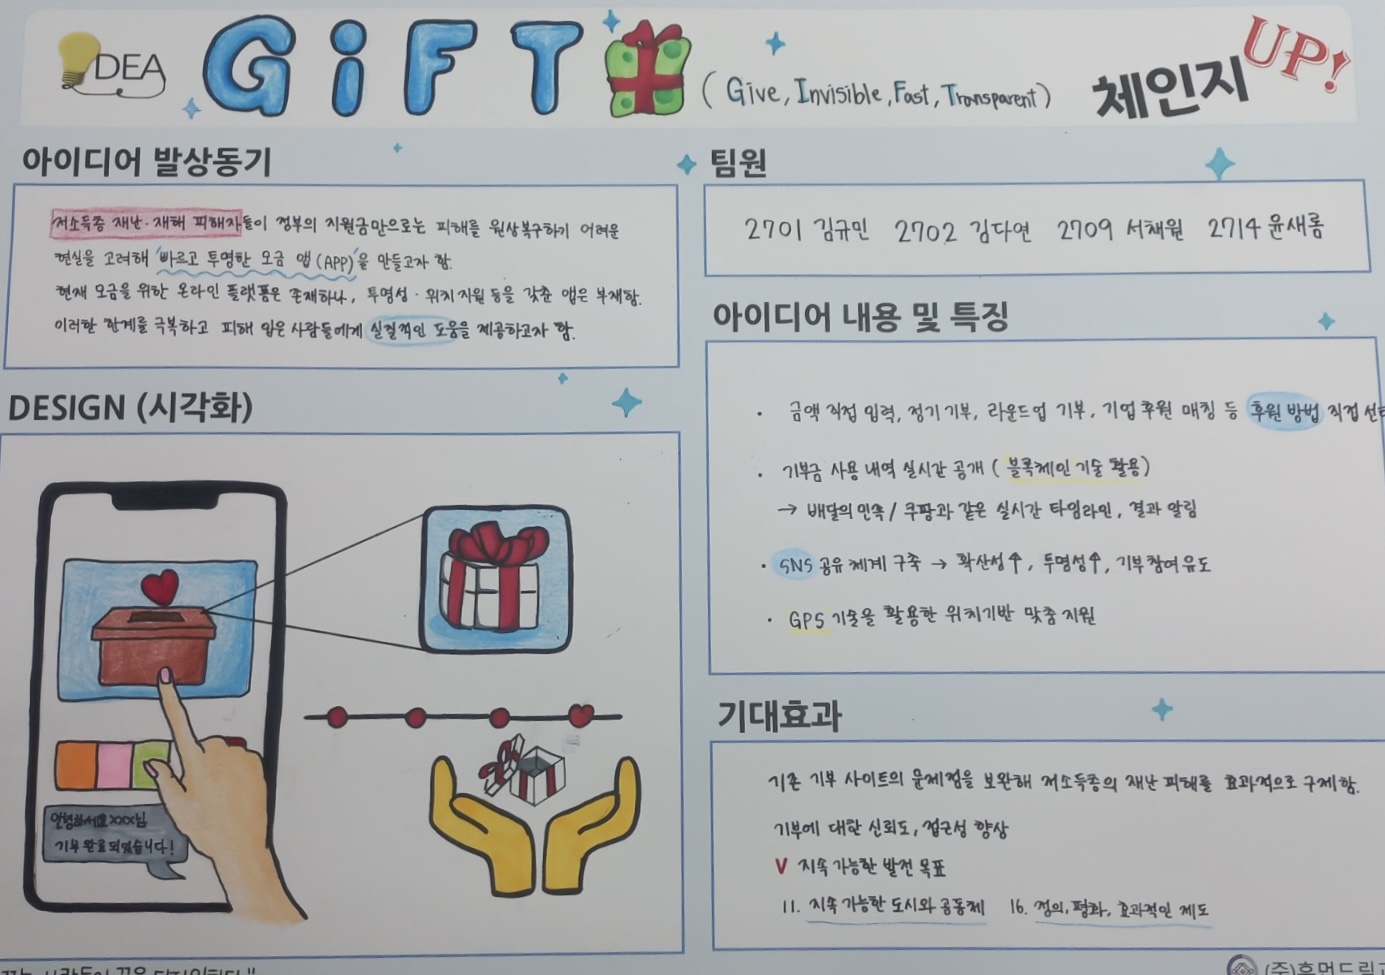 IDEA GiFT (Give, Invisible, Fast, Transparent) 체인지 UP!
아이디어 발상동기
저소득층 재난·재해 피해자들이 정부의 지원금만으로는 피해를 원상복구하기 어려운
현실을 고려해 '빠르고 투명한 모금 앱(APP)'을 만들고자 함.
현재 모금을 위한 온라인 플랫폼은 존재하나, 투명성·위치 지원 등을 갖춘 앱은 부재함.
이러한 한계를 극복하고 피해 입은 사람들에게 실질적인 도움을 제공하고자 함.
DESIGN (시각화)
안녕하세요 xxx님
기부 완료되었습니다!
팀원
2701 김규민 2702 김다연 2709 서채원 2714 윤새롬
아이디어 내용 및 특징
· 금액 직접 입력, 정기 기부, 라운드업 기부, 기업 후원 매칭 등 후원 방법 직접
· 기부금 사용 내역 실시간 공개 (블록체인 기술 활용)
→ 배달의 민족 / 쿠팡과 같은 실시간 타임라인, 결과 알림
· SNS 공유 체계 구축 → 확산성↑, 투명성↑, 기부 참여 유도
· GPS 기술을 활용한 위치기반 맞춤 지원
기대효과
기존 기부 사이트의 문제점을 보완해 저소득층의 재난 피해를 효과적으로 구제함.
기부에 대한 신뢰도, 접근성 향상
V 지속 가능한 발전 목표
11. 지속 가능한 도시와 공동체 16. 정의, 평화, 효과적인 제도